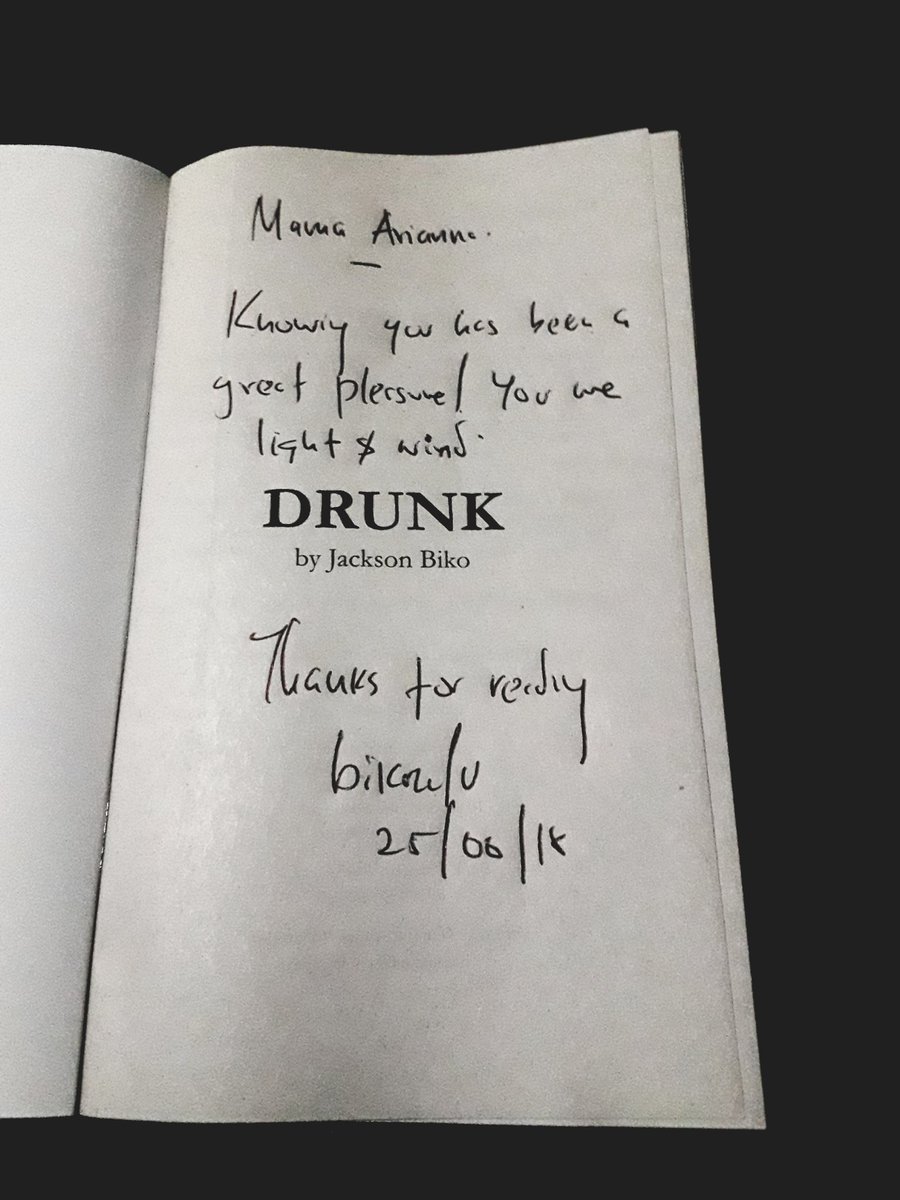 Mama Arianna.
Knowing you has been a
great pleasure! You are
light & wind.
DRUNK
by Jackson Biko
Thanks for reading
25/06/18